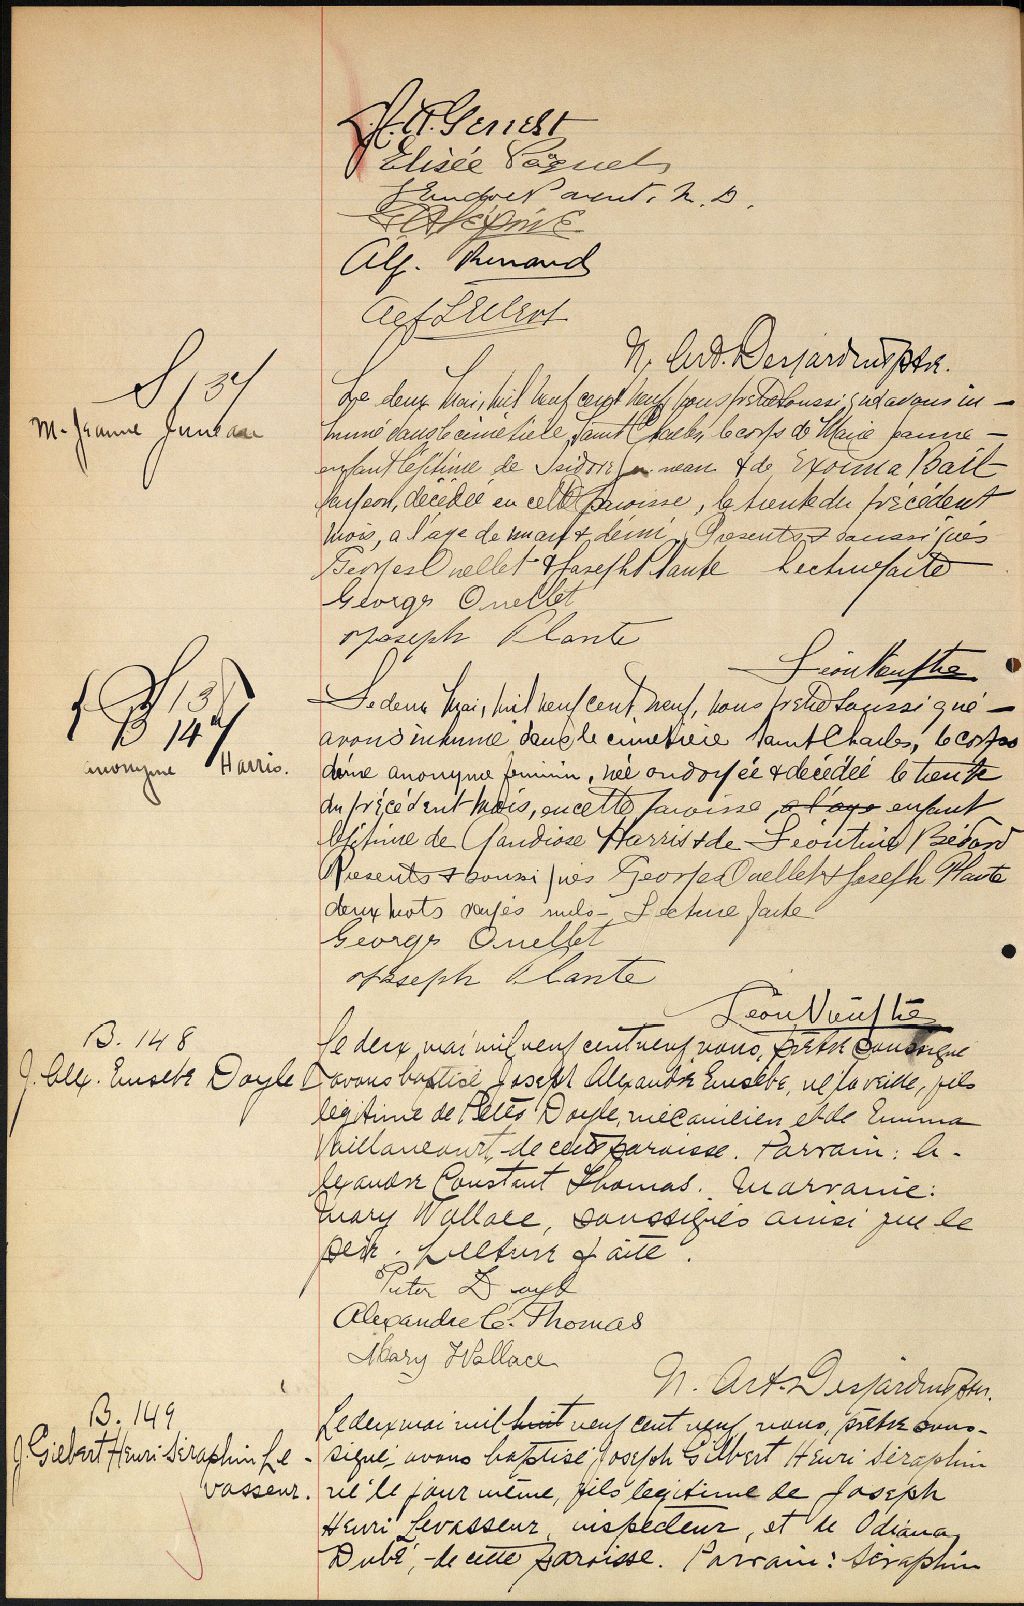 Genest
Elisée Paquet
Parent, N. D.
Alf. Renaud
N. Art. Desjardins ptre.
S 137
M. Jeanne Juneau
Le deux Mai, mil neuf cent neuf nous prêtre soussigné avons in-
humé dans le cimetière Saint Charles, le corps de Marie Jeanne -
enfant légitime de Isidore Juneau & de Exorina Bait
décédée en cette paroisse, le trente du précédent
mois, a l'age de un an & demi. Presents & soussignés
Georges Ouellet & Joseph Plante Lecture faite
Georges Ouellet
Joseph Plante
Léon Vien ptre
S 138
B 147
anonyme Harris.
Le deux Mai, mil neuf cent neuf, nous prêtre soussigné -
avons inhumé dans le cimetière Saint Charles, le corps
d'une anonyme feminin, née ondoyée & décédée le trente
du précédent Mois, en cette paroisse, a l'age enfant
légitime de Gaudiose Harris & de Léontine Bédard
Presents & soussignés Georges Ouellet & Joseph Plante
deux mots rayés nuls - Lecture faite
Georges Ouellet
Joseph Plante
Léon Vien ptre
B. 148
J. Alex. Eusèbe Doyle
Le deux mai mil neuf cent neuf nous, prêtre soussigné
avons baptisé Joseph Alexandre Eusèbe, né la veille, fils
légitime de Peter Doyle, mécanicien, et de Emma
Vaillancourt, de cette paroisse. Parrain: A-
lexandre Constant Thomas. Marraine:
Mary Wallace, soussignés ainsi que le
père. Lecture faite.
Peter Doyle
Alexandre C. Thomas
Mary Wallace
N. Art. Desjardins ptre.
B. 149
J. Gilbert Henri Séraphin Le-
vasseur.
Le deux mai mil huit neuf cent neuf, nous, prêtre sous-
signé, avons baptisé Joseph Gilbert Henri Séraphin
né le jour même, fils légitime de Joseph
Henri Levasseur, inspecteur, et de Odiana
Dubé, de cette paroisse. Parrain: Séraphin